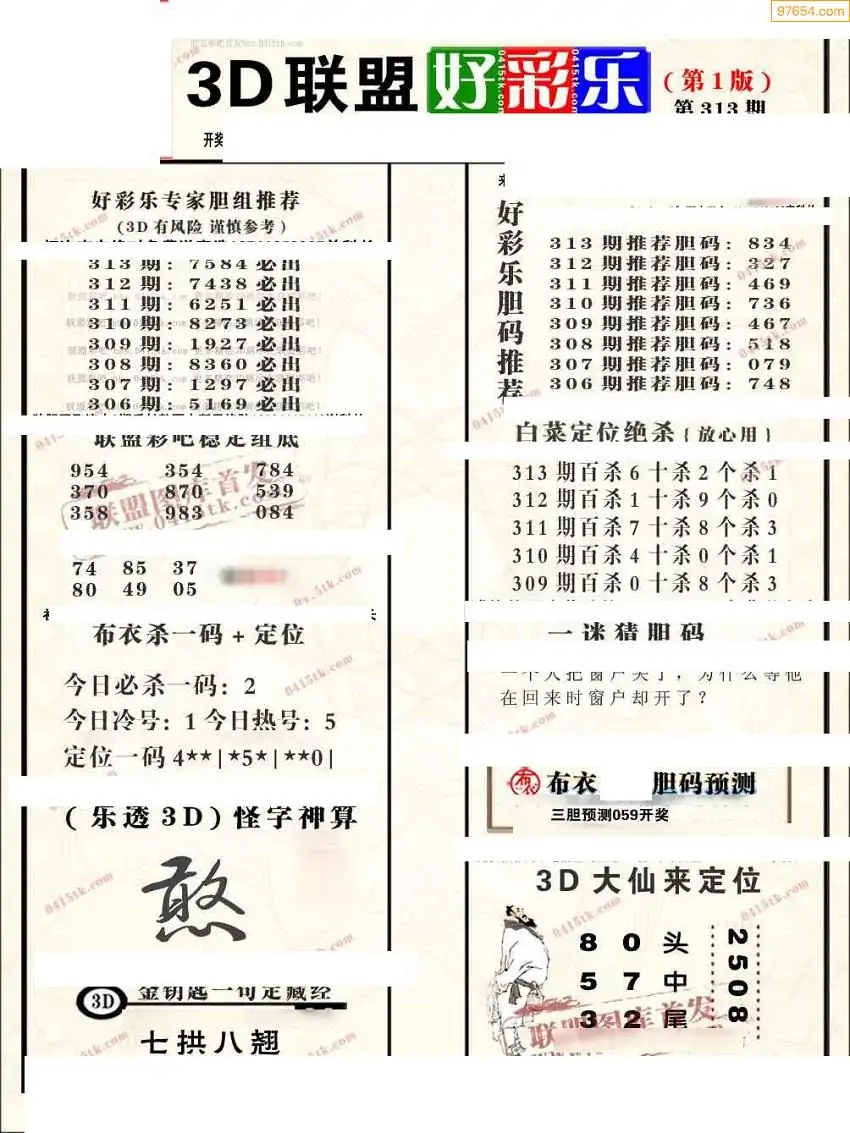 97654.com
3D联盟好彩乐
(第1版)
第313期
开奖
好彩乐专家胆组推荐
(3D有风险 谨慎参考)
313期: 7584必出
312期: 7438必出
311期: 6251必出
310期: 8273必出
309期: 1927必出
308期: 8360必出
307期: 1297必出
306期: 5169必出
联盟彩吧稳定组底
954 354 784
370 870 539
358 983 084
联盟图库首发
74 85 37
80 49 05
布衣杀一码+定位
今日必杀一码: 2
今日冷号: 1 今日热号: 5
定位一码 4**|*5*|**0|
(乐透3D)怪字神算
憨
3D 金钥匙一句定藏经
七拱八翘
好彩乐胆码推荐
313期推荐胆码: 834
312期推荐胆码: 327
311期推荐胆码: 469
310期推荐胆码: 736
309期推荐胆码: 467
308期推荐胆码: 518
307期推荐胆码: 079
306期推荐胆码: 748
白菜定位绝杀{放心用}
313期百杀6十杀2个杀1
312期百杀1十杀9个杀0
311期百杀7十杀8个杀3
310期百杀4十杀0个杀1
309期百杀0十杀8个杀3
一迷猜胆码
一个人把窗户关了，为什么等他
在回来时窗户却开了?
布衣 胆码预测
三胆预测059开奖
3D大仙来定位
8 0 头
5 7 中
3 2 尾
2508
联盟图库首发
0415tk.com